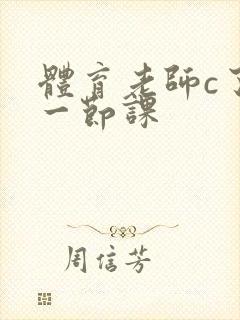 體育老師c了
一節課
周信芳